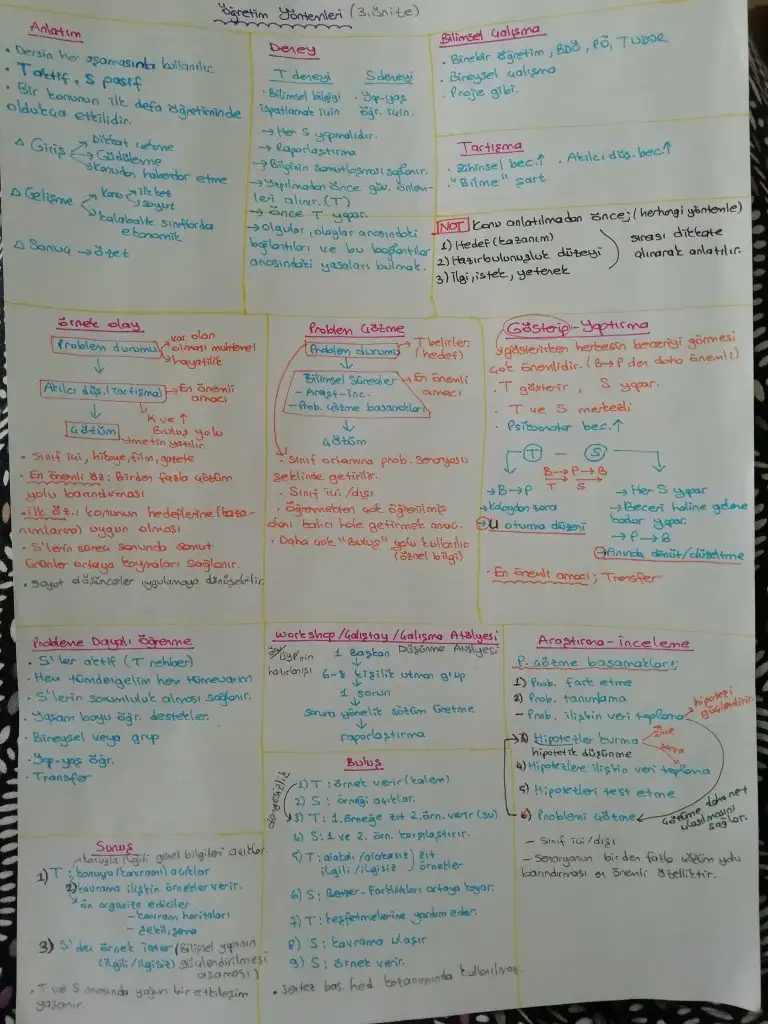 Öğretim Yöntemleri (3.ünite)
Anlatım
• Dersin her aşamasında kullanılır.
• T aktif, S pasif
• Bir konunun ilk defa öğretiminde
oldukça etkilidir.
△ Giriş → Dikkat çekme
→ Güdüleme
→ Konudan haberdar etme
△ Gelişme → Konu → ilk kez
→ soyut
→ kalabalık sınıflarda
ekonomik
△ Sonuç → özet
Deney
T deneyi
• Bilimsel bilgiyi
ispatlamak için
S deneyi
• Yap-yaş
öğr. için.
→ Her S yapmalıdır.
→ Raporlaştırma
→ Bilginin somutlaşması sağlanır.
→ Yapılmadan önce güv. önlem-
leri alınır. (T)
→ önce T yapar.
→ olgular, olaylar arasındaki
bağlantıları ve bu bağlantılar
arasındaki yasaları bulmak.
Bilimsel Çalışma
• Birebir öğretim, BDÖ, PÖ, TUDOR
• Bireysel çalışma
• Proje gibi.
Tartışma
• Zihinsel bec.↑ • Akılcı düş. bec.↑
• "Bilme" şart
NOT Konu anlatılmadan önce; (herhangi yöntemle)
1) Hedef (kazanım)
2) Hazırbulunuşluk düzeyi
3) ilgi, istek, yetenek
sırası dikkate
alınarak anlatılır.
örnek olay
Problem durumu → var olan
olması muhtemel
→ hayatilik
Akılcı düş. (Tartışma) → En önemli
amacı
K ve ↑
Çözüm → Buluş yolu
metin yazılır.
• Sınıf içi, hikaye, film, gazete
• En önemli öz: Birden fazla çözüm
yolu barındırması
• ilk öz.: konunun hedeflerine (kaza-
nımlarına) uygun olması
• S'lerin süreç sonunda somut
ürünler ortaya koymaları sağlanır.
• Soyut düşünceler uygulamaya dönüşebilir.
Problem Çözme
Problem durumu → T belirler.
(hedef)
Bilimsel Süreçler → En önemli
amacı
- Araşt-İnc.
- Prob. çözme basamakları
çözüm
• Sınıf ortamına prob. senaryosu
şeklinde getirilir.
• Sınıf içi/dışı
• Öğrenmeden çok öğrenilmiş
olanı kalıcı hale getirmek amaç.
• Daha çok "Buluş" yolu kullanılır.
(öznel bilgi)
Gösterip-Yaptırma
gösterirken herkesin beceriyi görmesi
çok önemlidir. (B→P den daha önemli)
• T gösterir, S yapar.
• T ve S merkezli
• Psikomotor bec.↑
T - S
B→P→B
T S
→ B→P
→ Kolaydan zora
→ U oturma düzeni
→ Her S yapar
→ Beceri haline gelene
kadar yapar.
→ P→B
→ Anında dönüt/düzeltme
• En önemli amacı; Transfer
Probleme Dayalı Öğrenme
• S'ler aktif (T rehber)
• Hem tümdengelim hem tümevarım
• S'lerin sorumluluk alması sağlanır.
• Yaşam boyu öğr. destekler.
• Bireysel veya grup
• Yap-yaş öğr.
• Transfer
Workshop/Çalıştay/Çalışma Atölyesi
Düşünme Atölyesi
1 Başkan
6-8 kişilik uzman grup
1 sorun
soruna yönelik çözüm üretme
raporlaştırma
Araştırma-inceleme
P. çözme basamakları;
1) Prob. fark etme
2) Prob. tanımlama
- Prob. ilişkin veri toplama → hipotezi
güçlendirir
3) Hipotezler kurma
hipotetik düşünme
4) Hipotezlere ilişkin veri toplama
5) Hipotezleri test etme
6) Problemi çözme
çözüme daha net
ulaşılmasını
sağlar.
- Sınıf içi/dışı
- Senaryonun birden fazla çözüm yolu
barındırması en önemli özelliktir.
Buluş
1) T: örnek verir (kalem)
2) S: örneği açıklar.
3) T: 1. örneğe zıt 2. örn. verir (su)
4) S: 1 ve 2. örn. karşılaştırır.
5) T: alakalı/alakasız
ilgili/ilgisiz
zıt
örnekler
6) S: Benzer-farklılıkları ortaya koyar.
7) T: keşfetmelerine yardım eder.
8) S: kavrama ulaşır
9) S: örnek verir.
• Sentez bas. hed. kazanımında kullanılmaz.
Sunuş
konuyla ilgili genel bilgileri açıklar.
1) T: konuyu (kavramı) açıklar
2) kavrama ilişkin örnekler verir.
ön organize ediciler
- kavram haritaları
- şekil, şema
3) S'den örnek ister (Bilişsel yapının
(ilgili/ilgisiz) güçlendirilmesi
aşaması)
• T ve S arasında yoğun bir etkileşim
yaşanır.